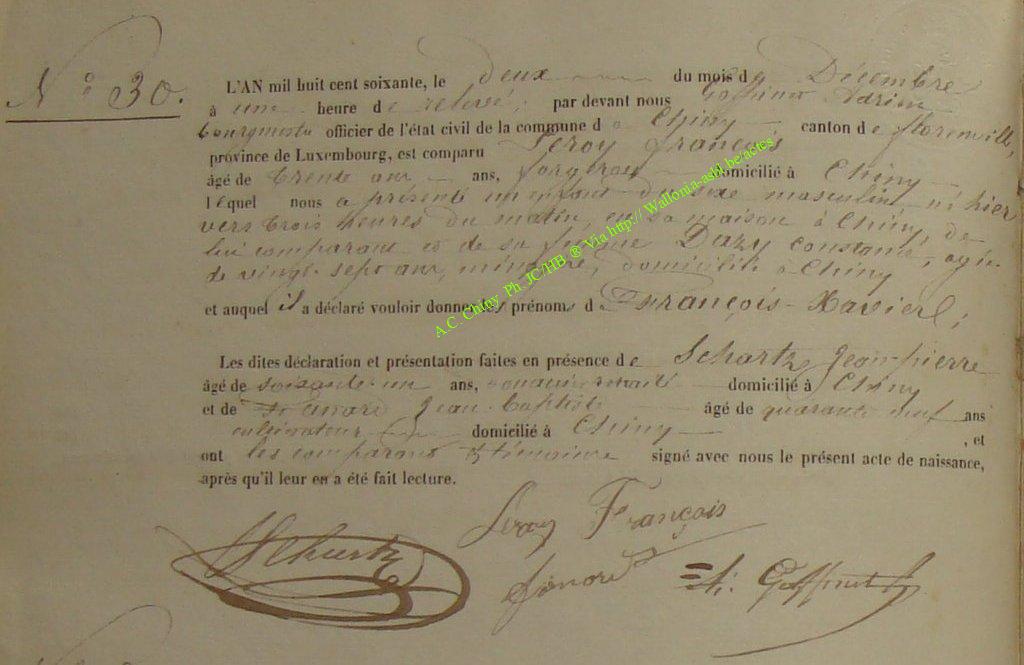 N° 30.
L'AN mil huit cent soixante, le deux du mois de Décembre
à une heure de relevé, par devant nous Goffinet Adrien
bourgmestre officier de l'état civil de la commune de Chiny canton de florenville,
province de Luxembourg, est comparu Leroy françois
âgé de trente ans, forgeron domicilié à Chiny
lequel nous a présenté un enfant du sexe masculin né hier
vers trois heures du matin, en sa maison à Chiny, de
lui comparant et de sa femme Dazy Constance, agée
de vingt-sept ans, ménagère, domiciliée à Chiny
et auquel il a déclaré vouloir donner les prénoms de François-Xavier;
Les dites déclaration et présentation faites en présence de Schartz Jean pierre
âgé de soixante-un ans, domicilié à Chiny
et de Jean-baptiste âgé de quarante neuf ans
cultivateur domicilié à Chiny, et
ont les comparant et témoins signé avec nous le présent acte de naissance,
après qu'il leur en a été fait lecture.
Leroy François
Schartz
A. Goffinet
A.C. Chiny Ph. JC/HB ® Via http:// Wallonia-asbl.be/actes